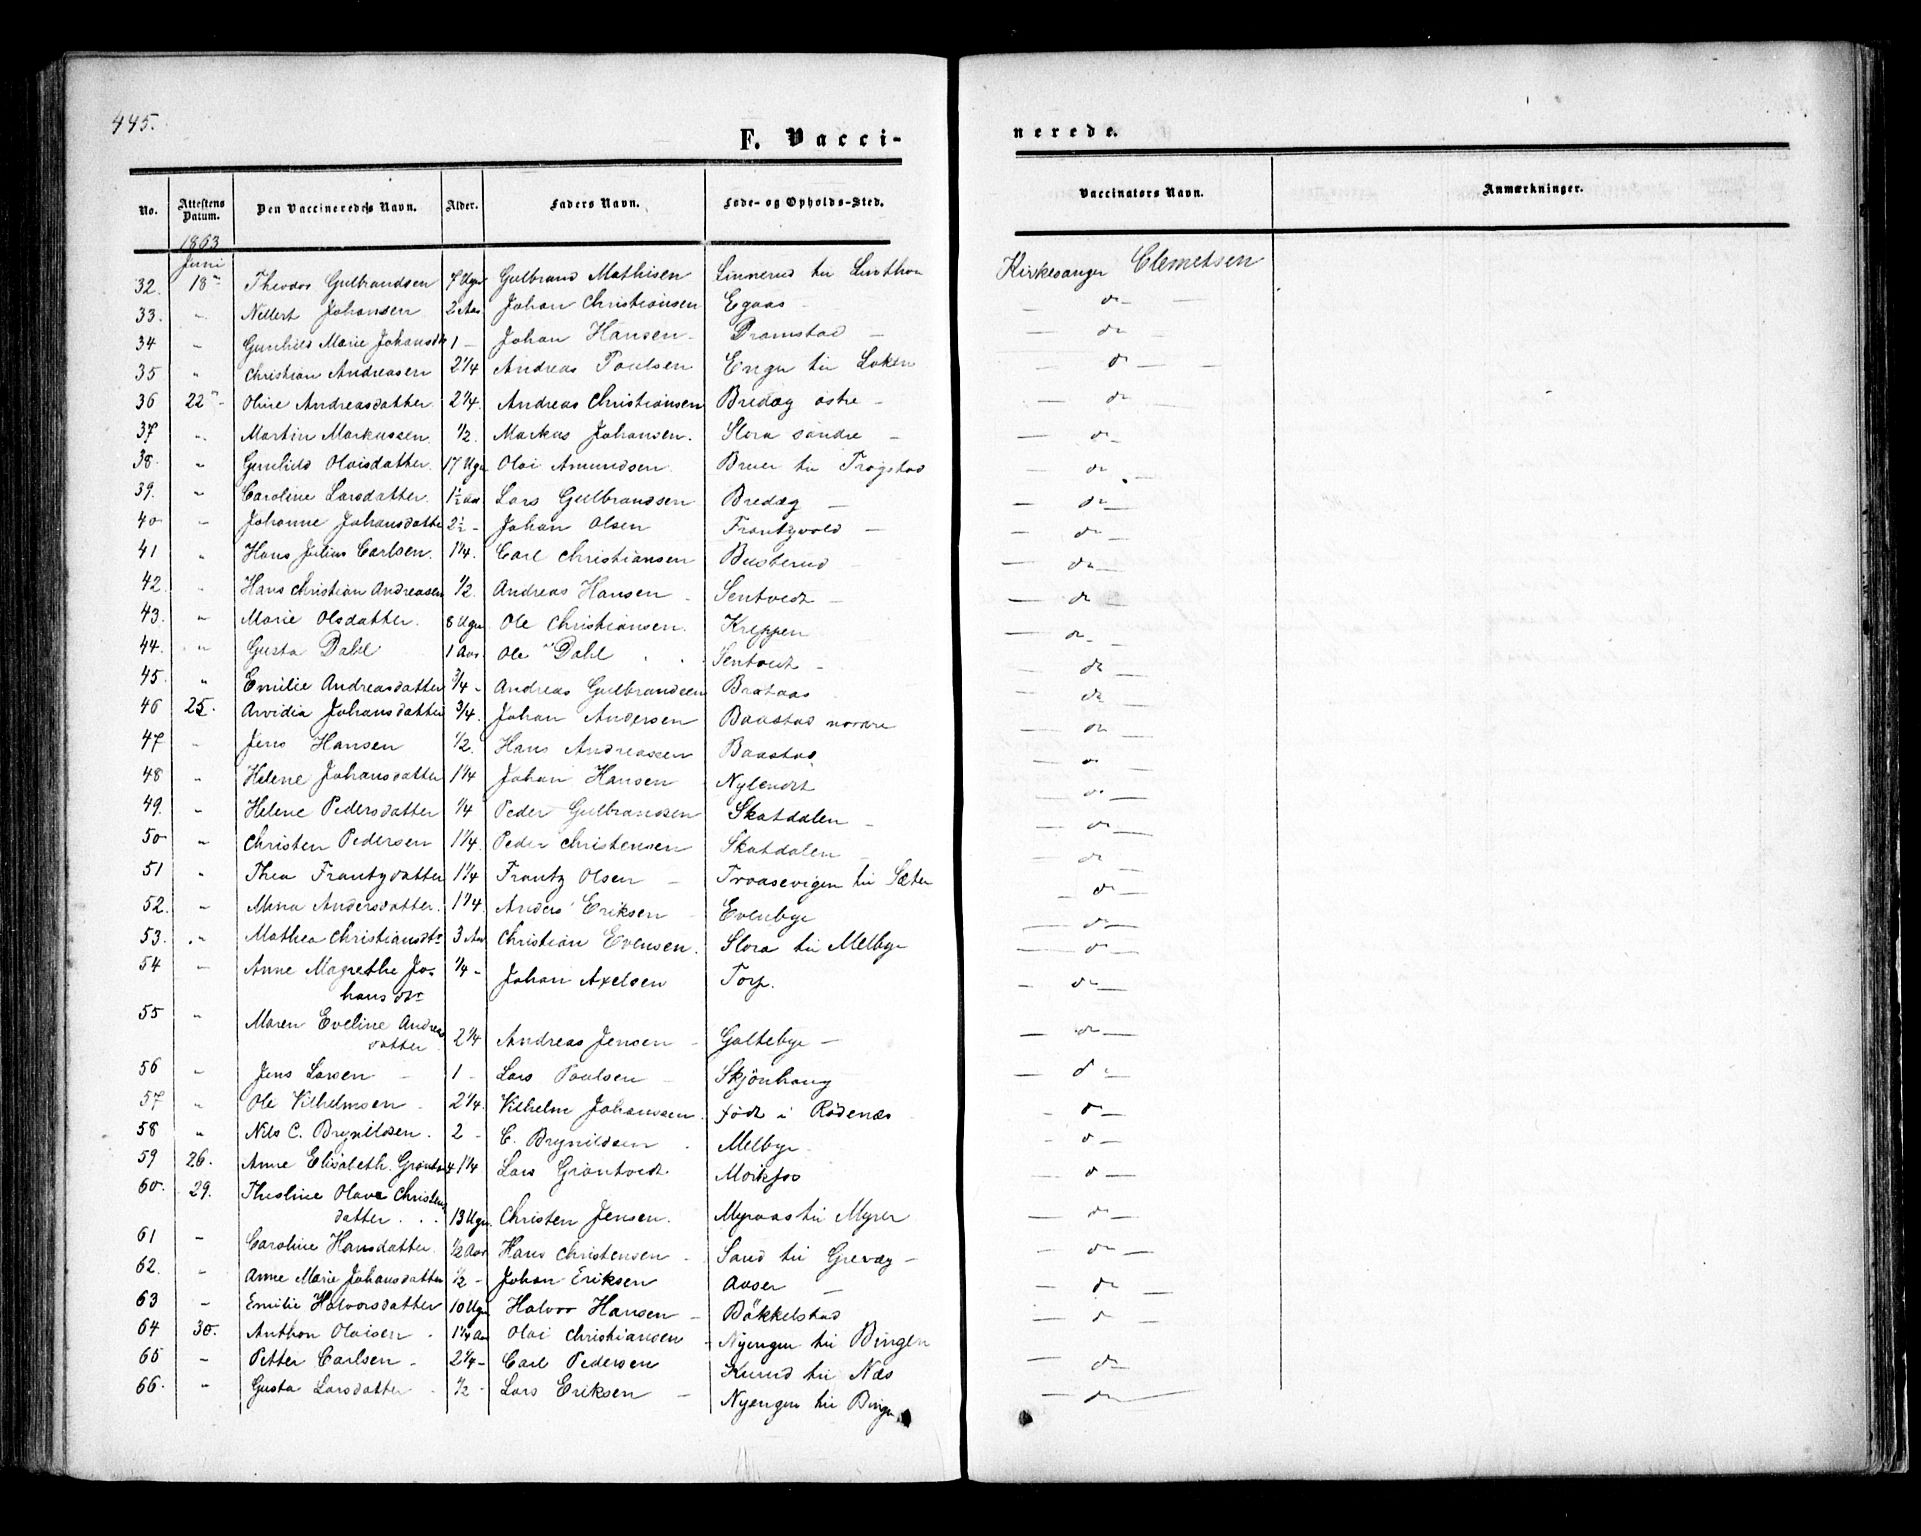 445.
F. Vacci-
nerede.
No. Attestens Datum. Den Vaccineredes Navn. Alder. Faders Navn. Føde- og Opholds-Sted. Vaccinators Navn. Anmærkninger.
1863
Juni
32. 18 Theodor Gulbrandsen 7 Ugr Gulbrand Mathisen Linnerud til Kirkesanger Clemetsen
33. " Nillert Johansen 2 Aar Johan Christiansen Egaas - do -
34 " Gunhild Marie Johansdtr 1 - Johan Hansen. Dramstad - - do -
35 " Christian Andreasen 2 1/4 Andreas Poulsen Engen til Løken - do -
36 22 - Oline Andreasdatter. 2 1/4. Andreas Christiansen Bredæg østre - - do -
37. " Martin Markussen. 1/2. Markus Johansen. Slora søndre - - do -
38. " Gunhild Olaisdatter. 17 Ugr Olai Amundsen. til Trøgstad - do -
39. " Caroline Larsdatter. 1 1/2 Aar Lars Gulbrandsen Bredæg - - do -
40 " Johanne Johansdatter 2 1/2 - Johan Olsen Frantzvold - - do -
41 " Hans Julius Carlsen. 1 1/4. Carl Christiansen Busterud - - do -
42. " Hans Christian Andreasen 1/2. Andreas Hansen - Sentvedt - - do -
43. " Marie Olsdatter. 8 Ugr Ole Christiansen. Kreppen - do -
44. " Gusta Dahl 1 Aar Ole Dahl Sentvedt - - do -
45. " Emilie Andreasdatter 3/4 - Andreas Gulbrandsen Brataas - do -
46 25. Arvidia Johansdatter 3/4. Johan Andersen Baastad nordre - do -
47 " Jens Hansen 1/2. Hans Andreassen Baastad - do -
48 " Helene Johansdatter 1 1/4 Johan Hansen - do -
49. " Helene Pedersdatter 1/4 Peder Gulbrandsen Skatdalen - - do -
50 " Christen Pedersen 1 1/4. Peder Christensen Skatdalen - - do -
51 " Thea Frantzdatter 1 1/4 Frantz Olsen - Traasevigen til Sæter - do -
52. " Maria Andersdatter. 1 1/4. Anders Eriksen - Evenbye - do -
53. " Mathea Christiansdtr 3 Aar Christian Evensen. Slora til Melbye - do -
54 " Anne Magrethe Jo-
hansdtr 1/4 - Johan Axelsen Torp. - do -
55 " Maren Eveline Andreas
datter 2 1/4 Andreas Jensen - Galtebye - - do -
56 " Jens Larsen - 1 - Lars Poulsen - Skjønhaug - do -
57 " Ole Vilhelmsen - 2 1/4. Vilhelm Johanssen. født i Rødenæs - do -
58 " Nils C. Brynildsen. 2 - C. Brynildsen Melbye - do -
59 26. Anne Elisabeth. 1 1/4 Lars Grøntvedt. Morkfos - do -
60. 29. Thesline Olava Christens
datter... 13 Ugr. Christen Jensen. Myraas til Myrer - do -
61 - Caroline Hansdatter. 1/2 Aar Hans Christensen - Sand til Grevæg - - do -
62. " Anne Marie Johansdatter 1/2 - Johan Eriksen Aaser - - do -
63 " Emilie Halvorsdatter 10 Ugr Halvor Hansen - Båkkelstad - do -
64 30. Anthon Olaisen. 1 1/4 Aar Olai Christiansen - Nyengen til Bingen
65 " Petter Carlsen - 2 1/4 - Carl Pedersen til Næs - do -
66. " Gusta Larsdatter - 1/2 - Lars Eriksen - Nyengen til Bingen - do -